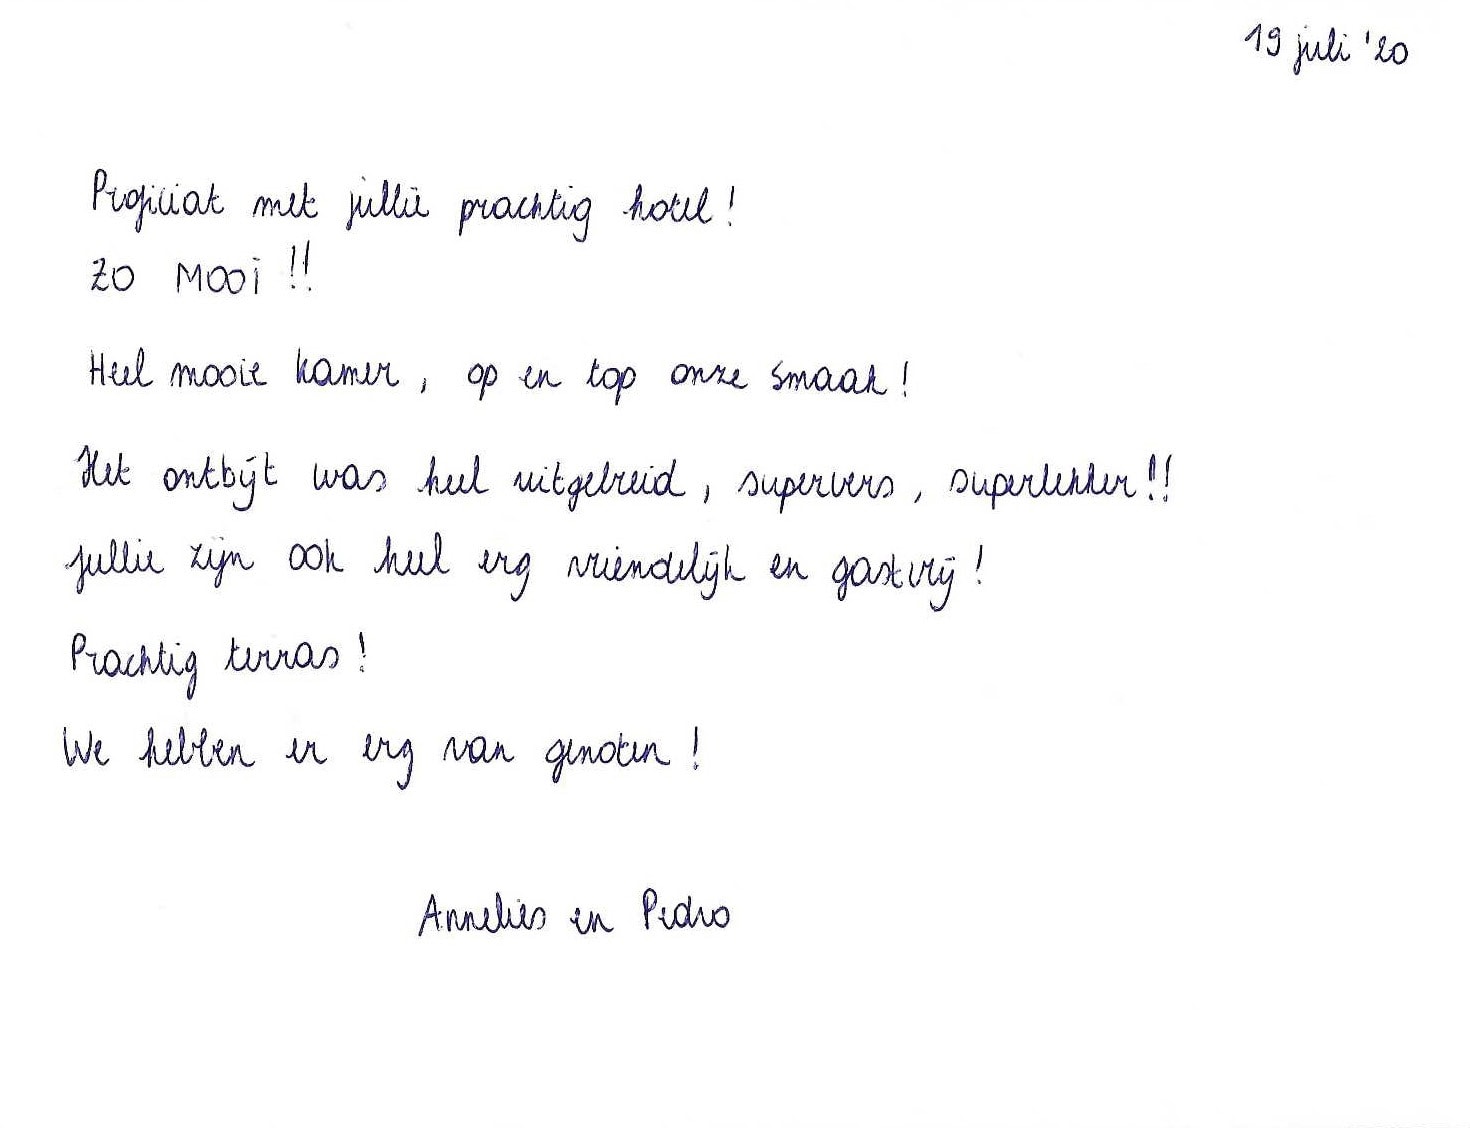 19 juli '20
Proficiat met jullie prachtig hotel!
ZO MOOi!!
Heel mooie kamer, op en top onze smaak!
Het ontbijt was heel uitgebreid, supervers, superlekker!!
Jullie zijn ook heel erg vriendelijk en gastvrij!
Prachtig terras!
We hebben er erg van genoten!
Annelies en Pedro